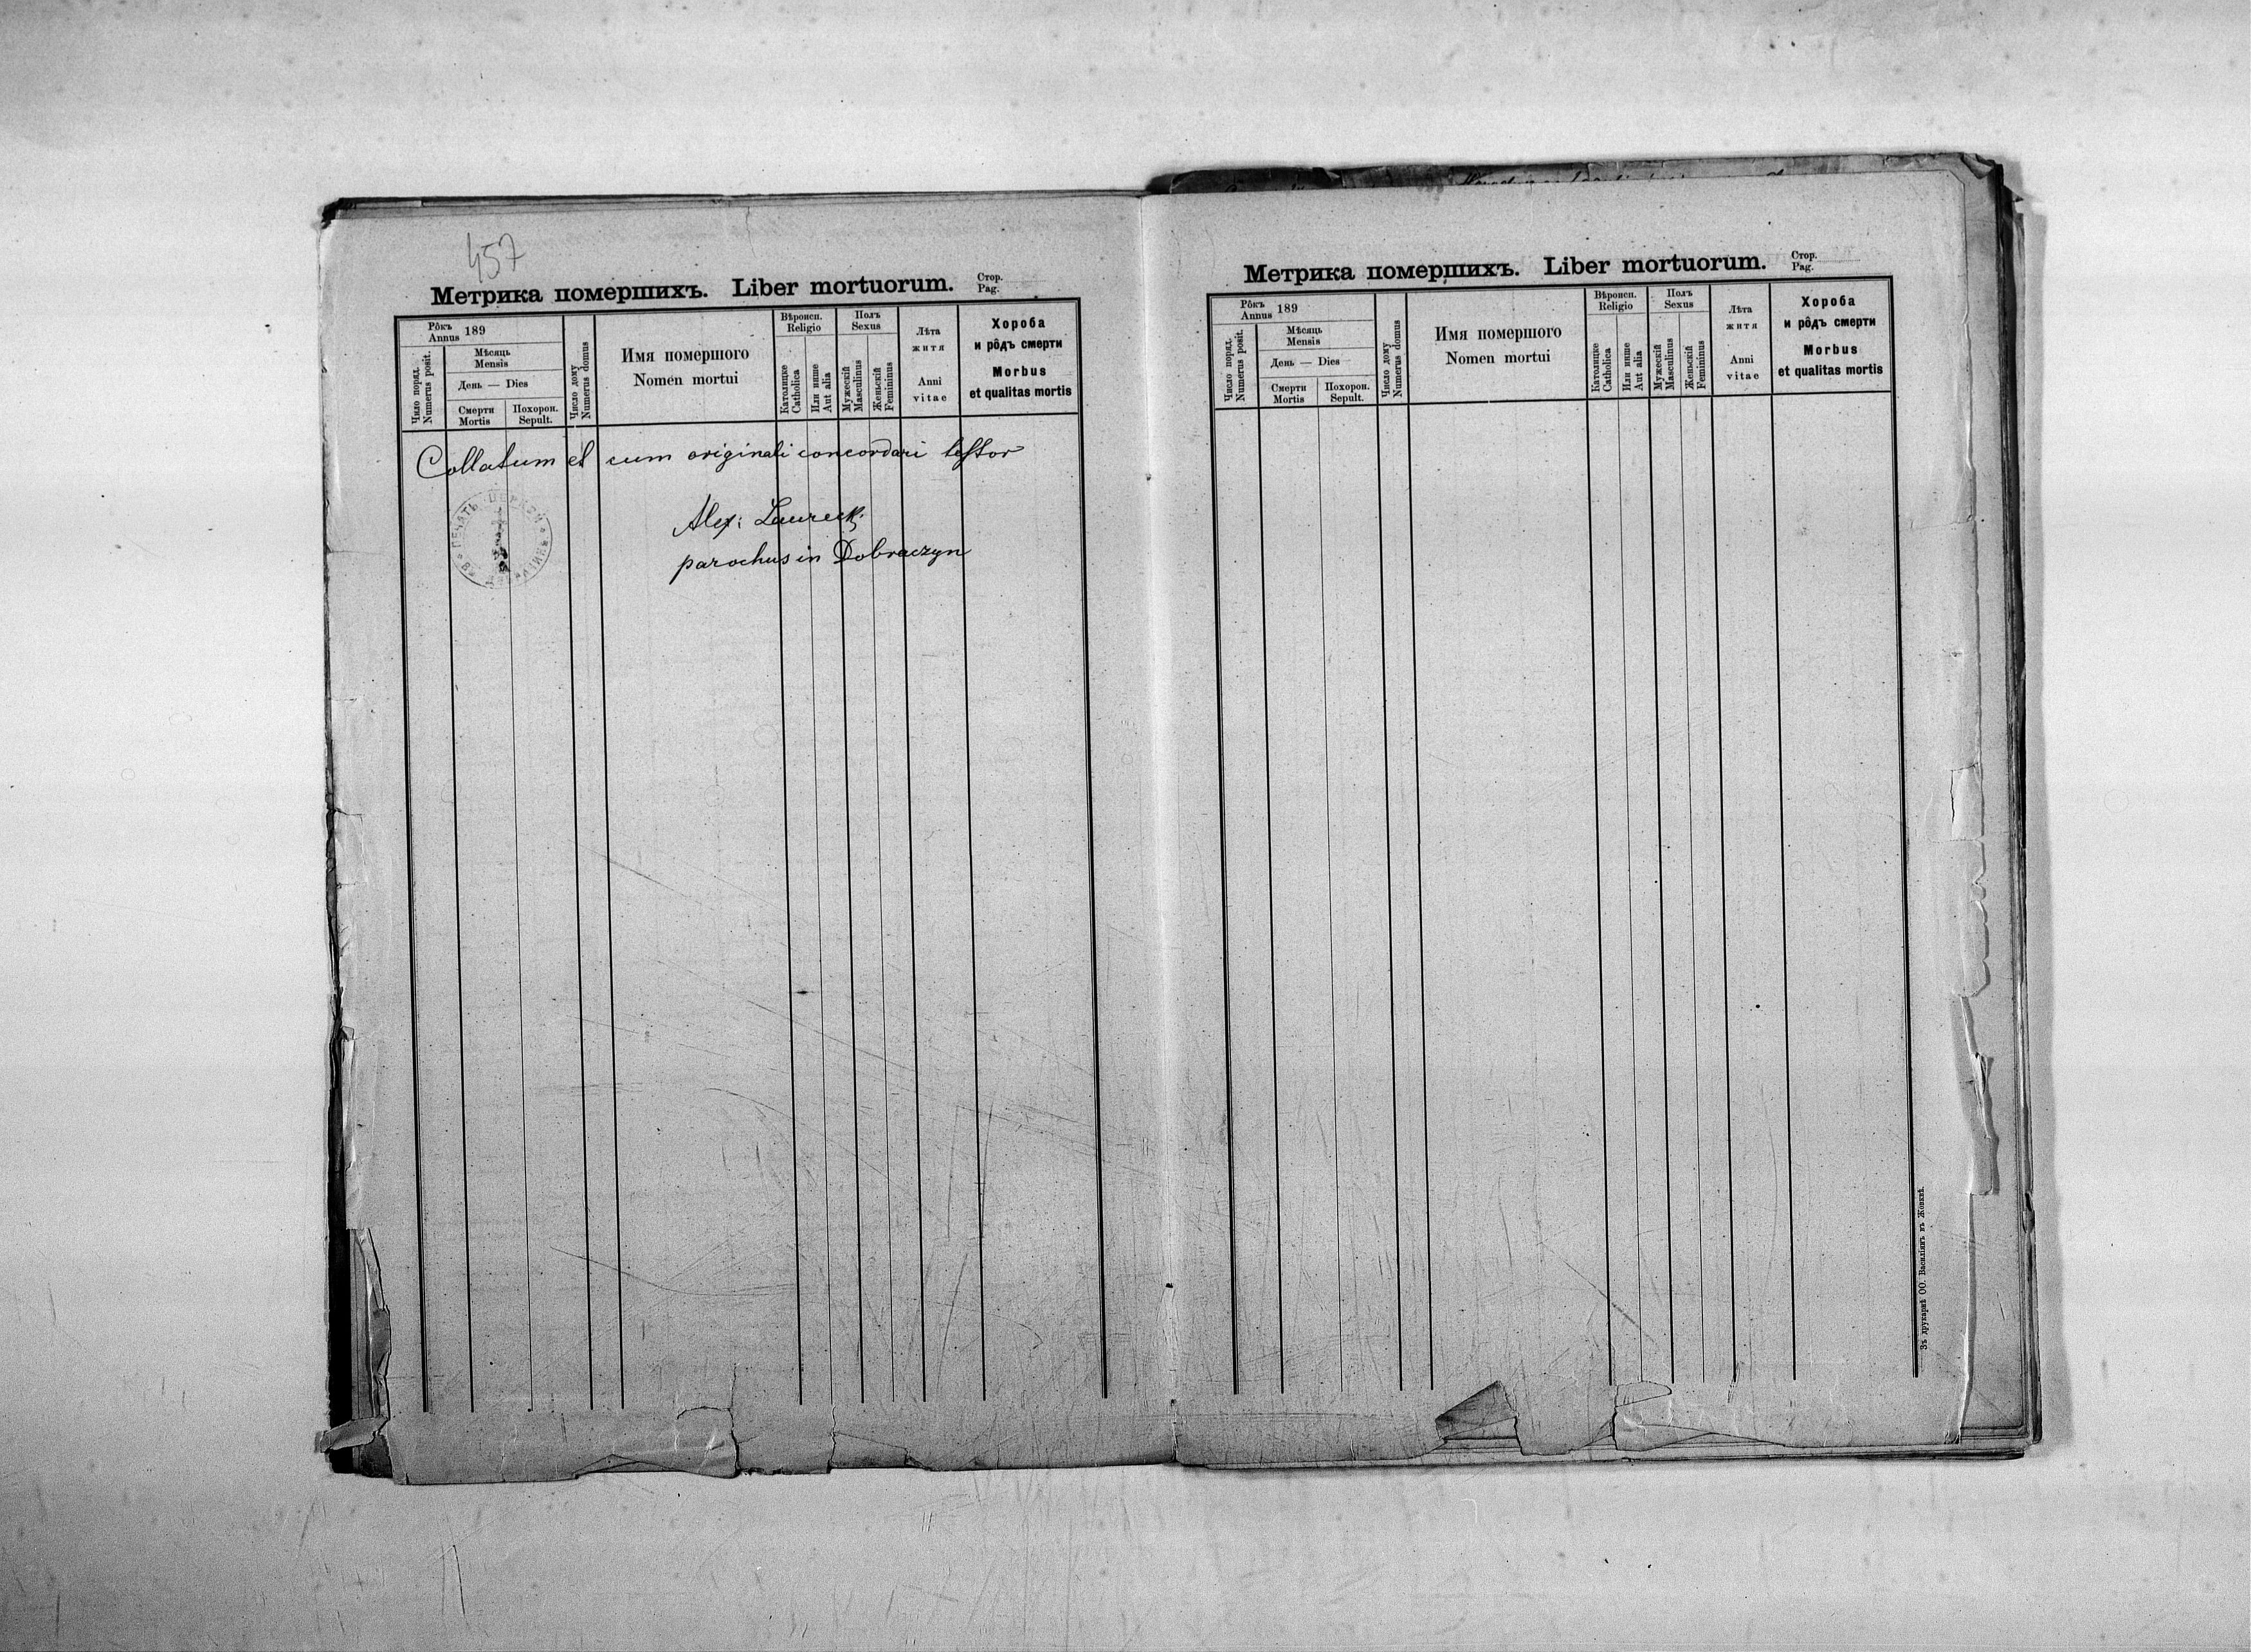 457
Метрика помершихъ. Liber mortuorum. Стор. Pag.
Рôкъ Annus 189
Чило поряд. Numerus posit.
Мѣсяць Mensis
День — Dies
Смерти Mortis
Похорон. Sepult.
Число дому Numerus domus
Имя помершого
Nomen mortui
Вѣроисп. Religio
Католицке Catholica
Или инше Aut alia
Полъ Sexus
Мужескій Masculinus
Женьскій Femininus
Лѣта житя
Anni vitae
Хороба
и рôдъ смерти
Morbus
et qualitas mortis
Collatum et cum originali concordari testor
Alex:
parochus in Dobraczyn
ПЕЧАТЬ ЦЕРКОИ
Метрика помершихъ. Liber mortuorum. Стор. Pag.
Рôкъ Annus 189
Число поряд. Numerus posit.
Мѣсяць Mensis
День — Dies
Смерти Mortis
Похорон. Sepult.
Число дому Numerus domus
Имя помершого
Nomen mortui
Вѣроисп. Religio
Католицке Catholica
Или инше Aut alia
Полъ Sexus
Мужескій Masculinus
Женьскій Femininus
Лѣта житя
Anni vitae
Хороба
и рôдъ смерти
Morbus
et qualitas mortis
Зъ друкарнѣ ОО. Василіянъ въ Жовквѣ.